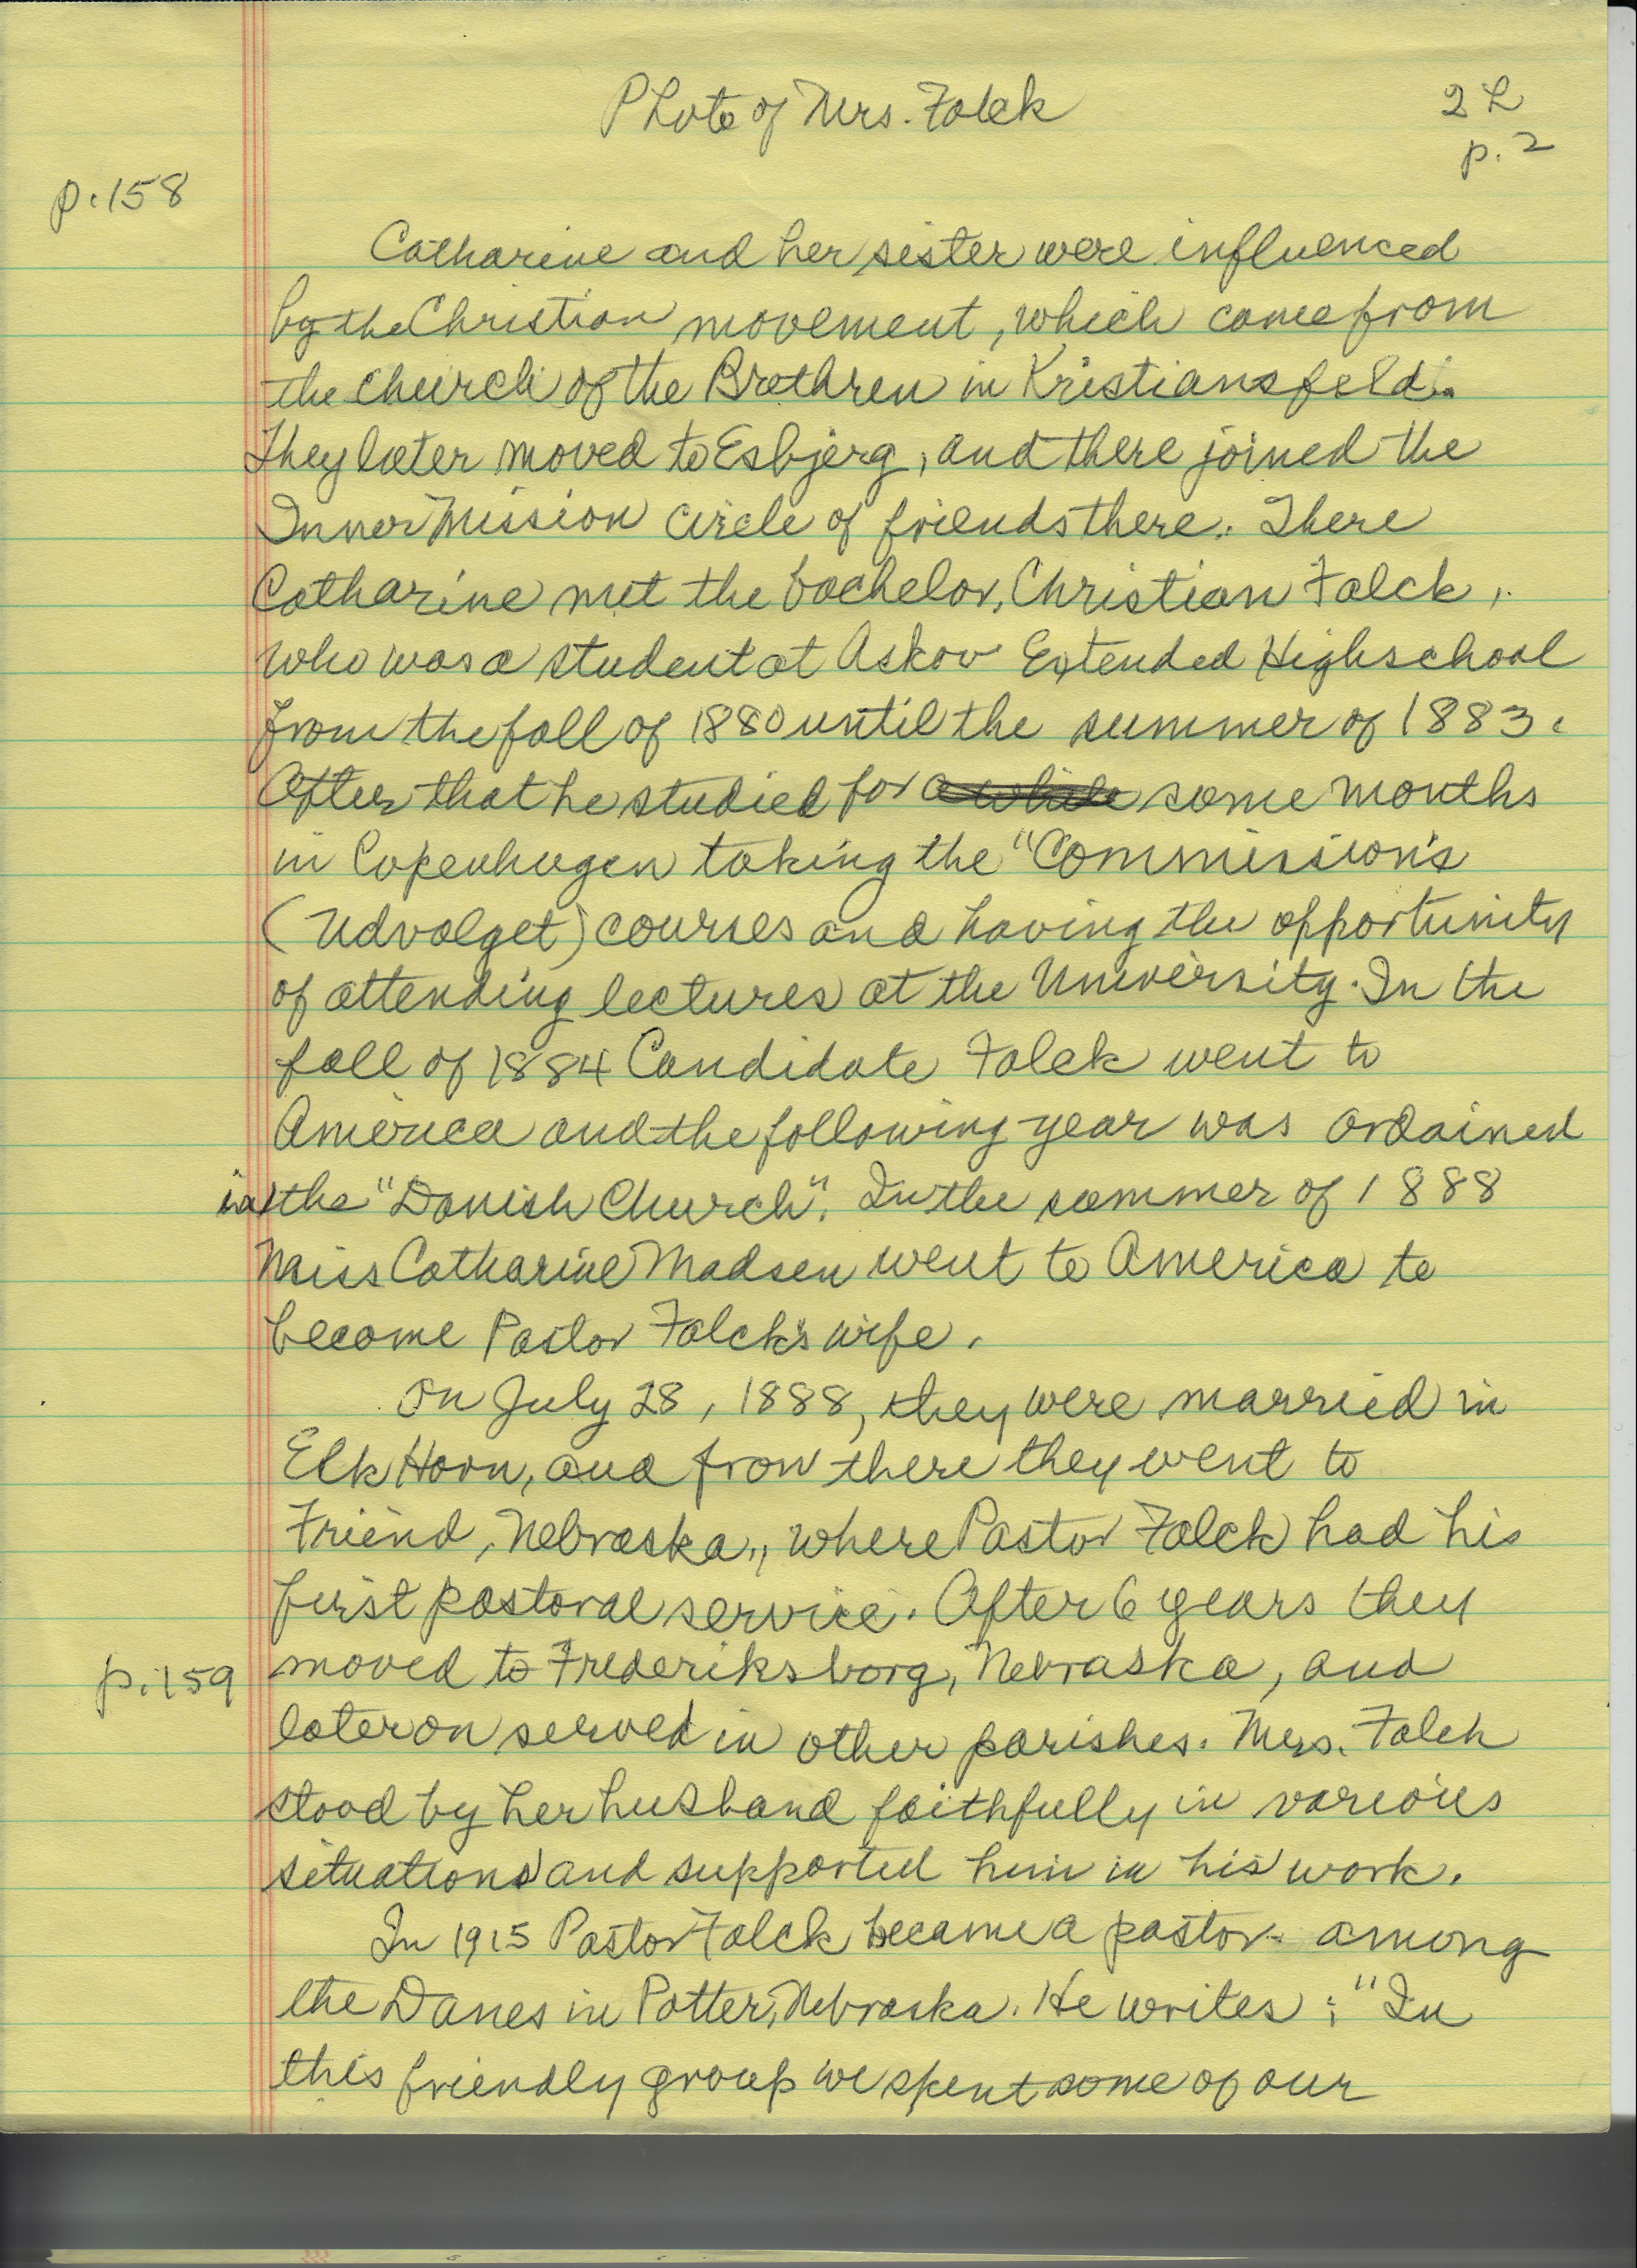 Photo of Mrs. Falck
2 L
p. 2
p. 158
Catharine and her sister were influenced
by the Christian movement, which came from
the church of the Brethren in Kristiansfeld.
They later moved to Esbjerg, and there joined the
Inner Mission circle of friends there. There
Catharine met the bachelor, Christian Falck,
who was a student at Askov Extended Highschool
from the fall of 1880 until the summer of 1883.
After that he studied for a while some months
in Copenhagen taking the "Commission's
(Udvalget) courses and having the opportunity
of attending lectures at the University. In the
fall of 1884 Candidate Falck went to
America and the following year was ordained
in the "Danish Church". In the summer of 1888
Miss Catharine Madsen went to America to
become Pastor Falck's wife.
On July 28, 1888, they were married in
Elk Horn, and from there they went to
Friend, Nebraska, where Pastor Falck had his
first pastoral service. After 6 years they
p. 159 moved to Frederiksborg, Nebraska, and
later on served in other parishes. Mrs. Falck
stood by her husband faithfully in various
situations and supported him in his work.
In 1915 Pastor Falck became a pastor among
the Danes in Potter, Nebraska. He writes: "In
this friendly group we spent some of our